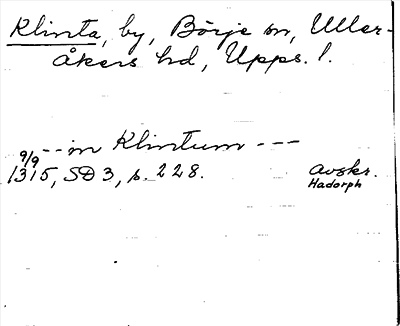 Klinta, by, Börje sn, Uller-
åkers hd, Upps. l.
-- in Klintum ---
9/9
1315, SD 3, s. 228. avskr.
Hadorph